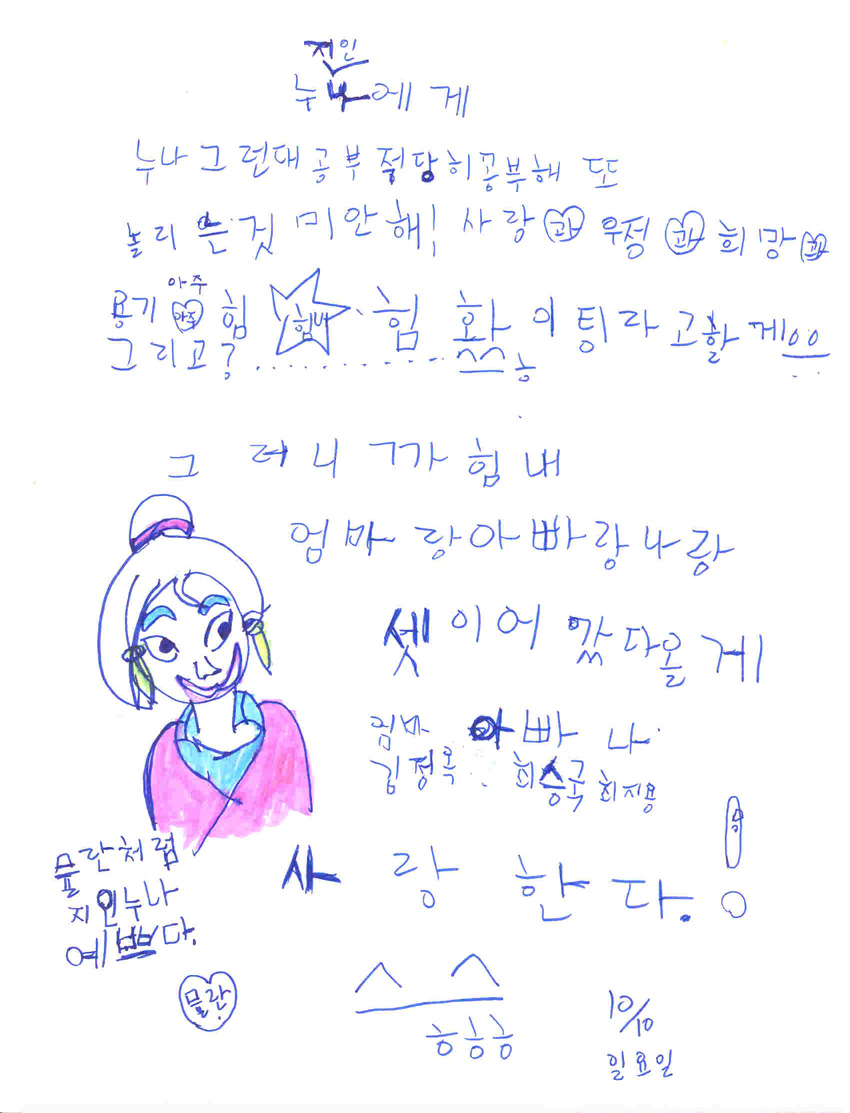 지인
누나에게
누나 그런대 공부 적당히공부해 또
놀리 은것 미안해! 사랑 과 우정 과 희망 과
용기 아주 아주 힘 힘버 힘 화이팅라고할게ㅇㅇ
그리고? ............... ㅎ
그러니까 힘내
엄마랑아빠랑나랑
셋이어 깄다올게
엄마 아빠 나
김정옥 최승국 최지용
사랑한다.!
믈란처럼
지인누나
예쁘다.
믈란
ㅎㅎㅎ
10/10
일요일